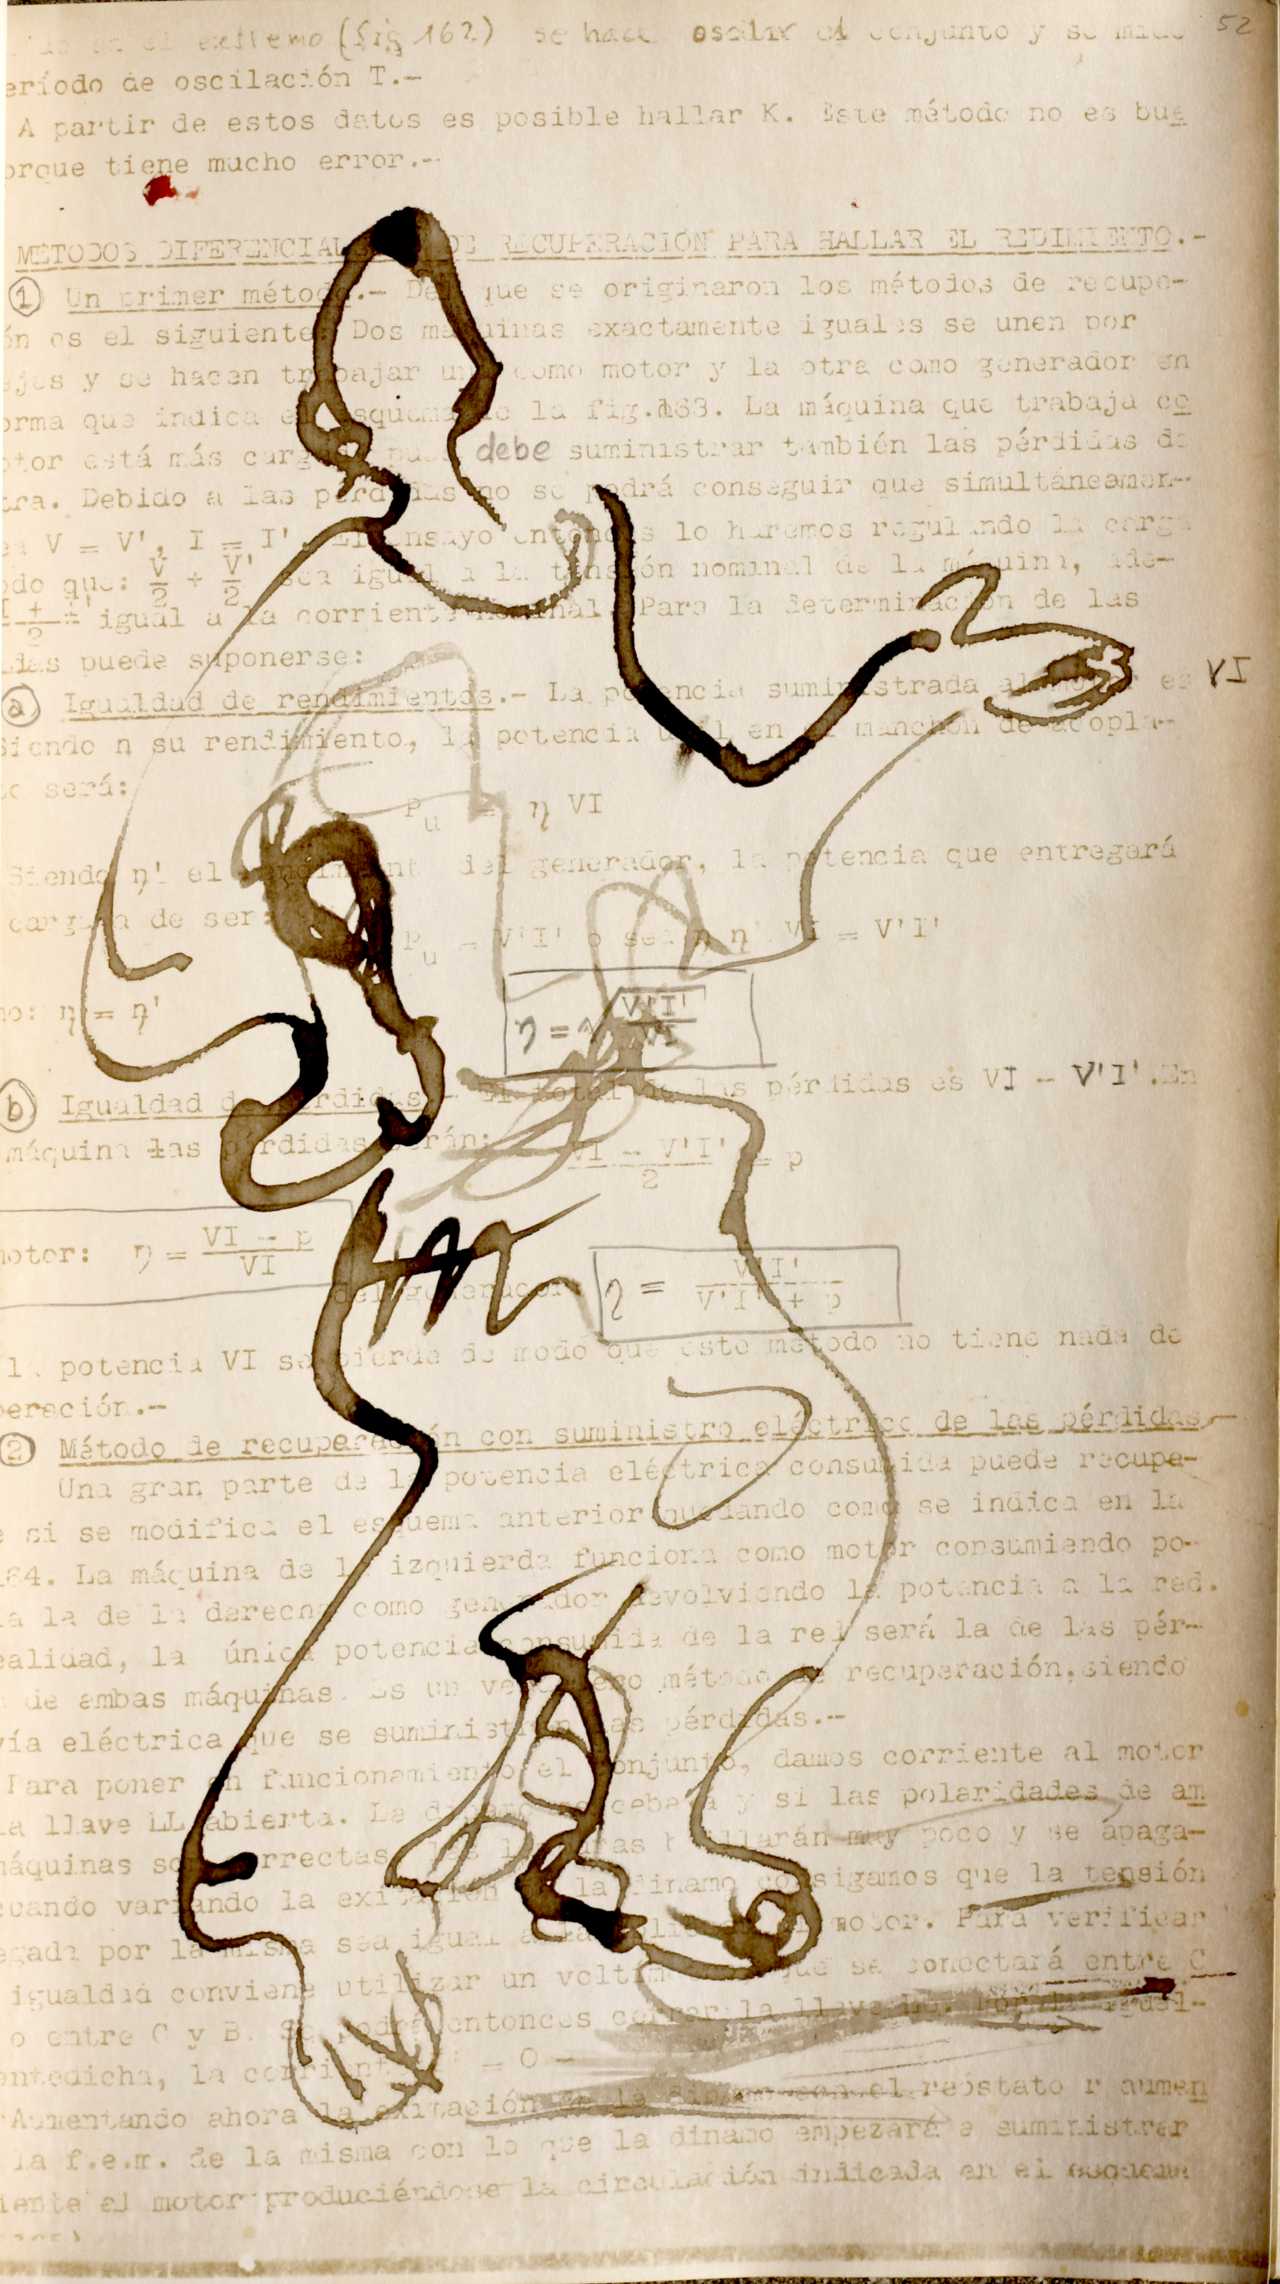 52
extremo (fig 162) se hace oscilar el conjunto y se mide
eríodo de oscilación T.-
A partir de estos datos es posible hallar K. Este método no es bue
orque tiene mucho error.-
METODOS DIFERENCIAL DE RECUPERACIÓN PARA HALLAR EL REDIMIENTO.-
1 Un primer método.- Del que se originaron los métodos de recupe-
ón es el siguiente Dos máquinas exactamente iguales se unen por
ejes y se hacen trabajar una como motor y la otra como generador en
orma que indica el esquema de la fig.163. La máquina que trabaja co
otor está más cargada pues debe suministrar también las pérdidas de
tra. Debido a las pérdidas no se podrá conseguir que simultáneamen-
ea V = V', I = I'. El ensayo entonces lo haremos regulando la carga
odo que: V/2 + V'/2 sea igual a la tensión nominal de la máquina, ade-
I + I'/2 igual a la corriente nominal. Para la determinación de las
idas puede suponerse:
a Igualdad de rendimientos.- La potencia suministrada al motor es VI
Siendo n su rendimiento, la potencia útil en el manchón de acopla-
to será:
Pu = η VI
Siendo η' el rendimiento del generador, la potencia que entregará
carga ha de ser:
Pu = V'I' o sea η η' VI = V'I'
mo: η = η'
η = √ V'I'/VI
b Igualdad de pérdidas.- El total de las pérdidas es VI - V'I'.En
máquina las pérdidas serán: VI - V'I'/2 = p
motor: η = VI - p/VI
del generador: η = V'I'/V'I' + p
la potencia VI se pierde de modo que este método no tiene nada de
peración.-
2 Método de recuperación con suministro eléctrico de las pérdidas.-
Una gran parte de la potencia eléctrica consumida puede recupe-
e si se modifica el esquema anterior quedando como se indica en la
164. La máquina de la izquierda funciona como motor consumiendo po-
ia la de la derecha como generador devolviendo la potencia a la red.
ealidad, la única potencia consumida de la red será la de las pér-
s de ambas máquinas. Es un verdadero método de recuperación,siendo
vía eléctrica que se suministran las pérdidas.-
Para poner en funcionamiento el conjunto, damos corriente al motor
la llave LL abierta. La dinamo se cebará y si las polaridades de am
máquinas son correctas las lámparas brillarán muy poco y se apaga-
cuando variando la exitación de la dinamo consigamos que la tensión
egada por la misma sea igual a la aplicada al motor. Para verificar
igualdad conviene utilizar un voltímetro que se conectará entre C
o entre C y B. Se podrá entonces cerrar la llave LL. Por la igual-
antedicha, la corriente I' = 0 -
Aumentando ahora la exitación de la dinamo con el reóstato r aumen
la f.e.m. de la misma con lo que la dinamo empezará a suministrar
iente al motor produciéndose la circulación indicada en el esquema